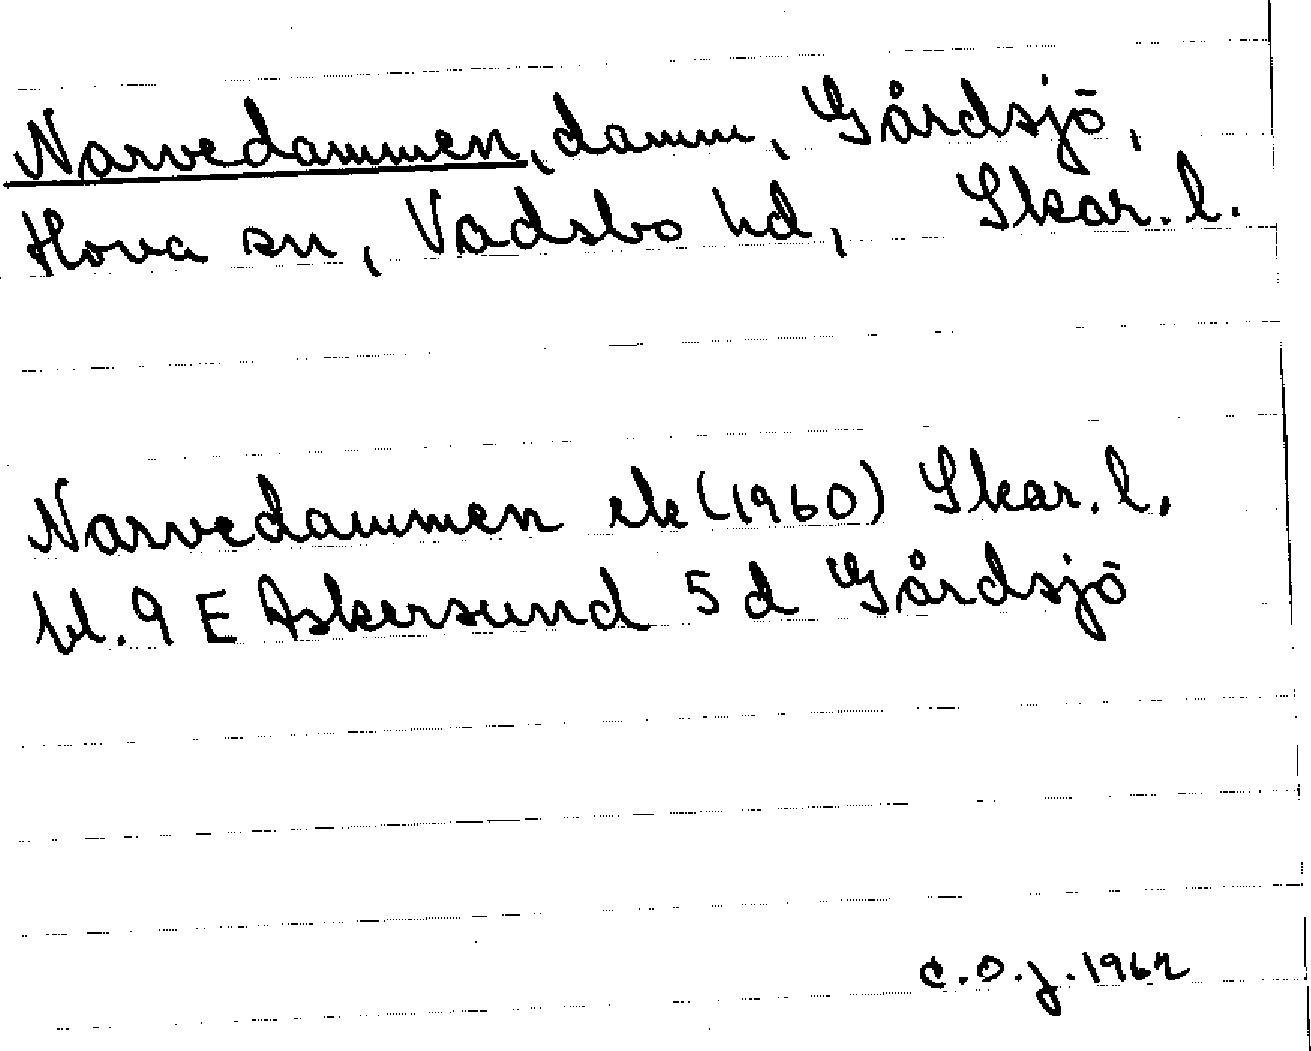 Narvedammen, damm, Gårdsjö,
Hova sn, Vadsbo hd, Skar. l.
Narvedammen ek (1960) Skar. l.
bl. 9 E Askersund 5 d Gårdsjö
C.O.J. 1962